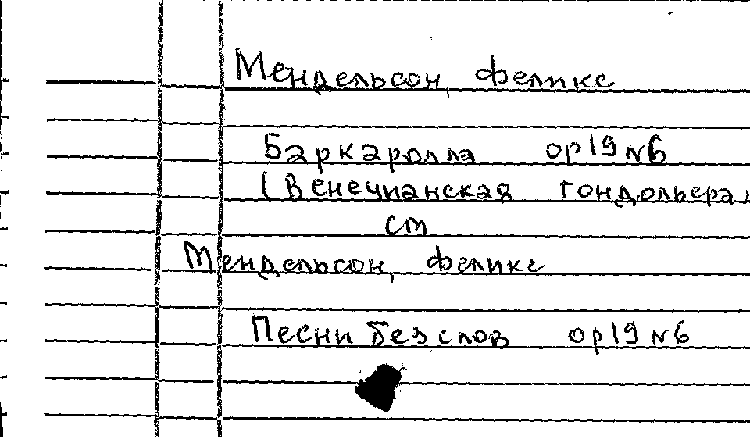 Мендельсон, Феликс
Баркаролла ор19 №6
(Венецианская гондольера)
см
Мендельсон, Феликс
Песни без слов ор19 №6